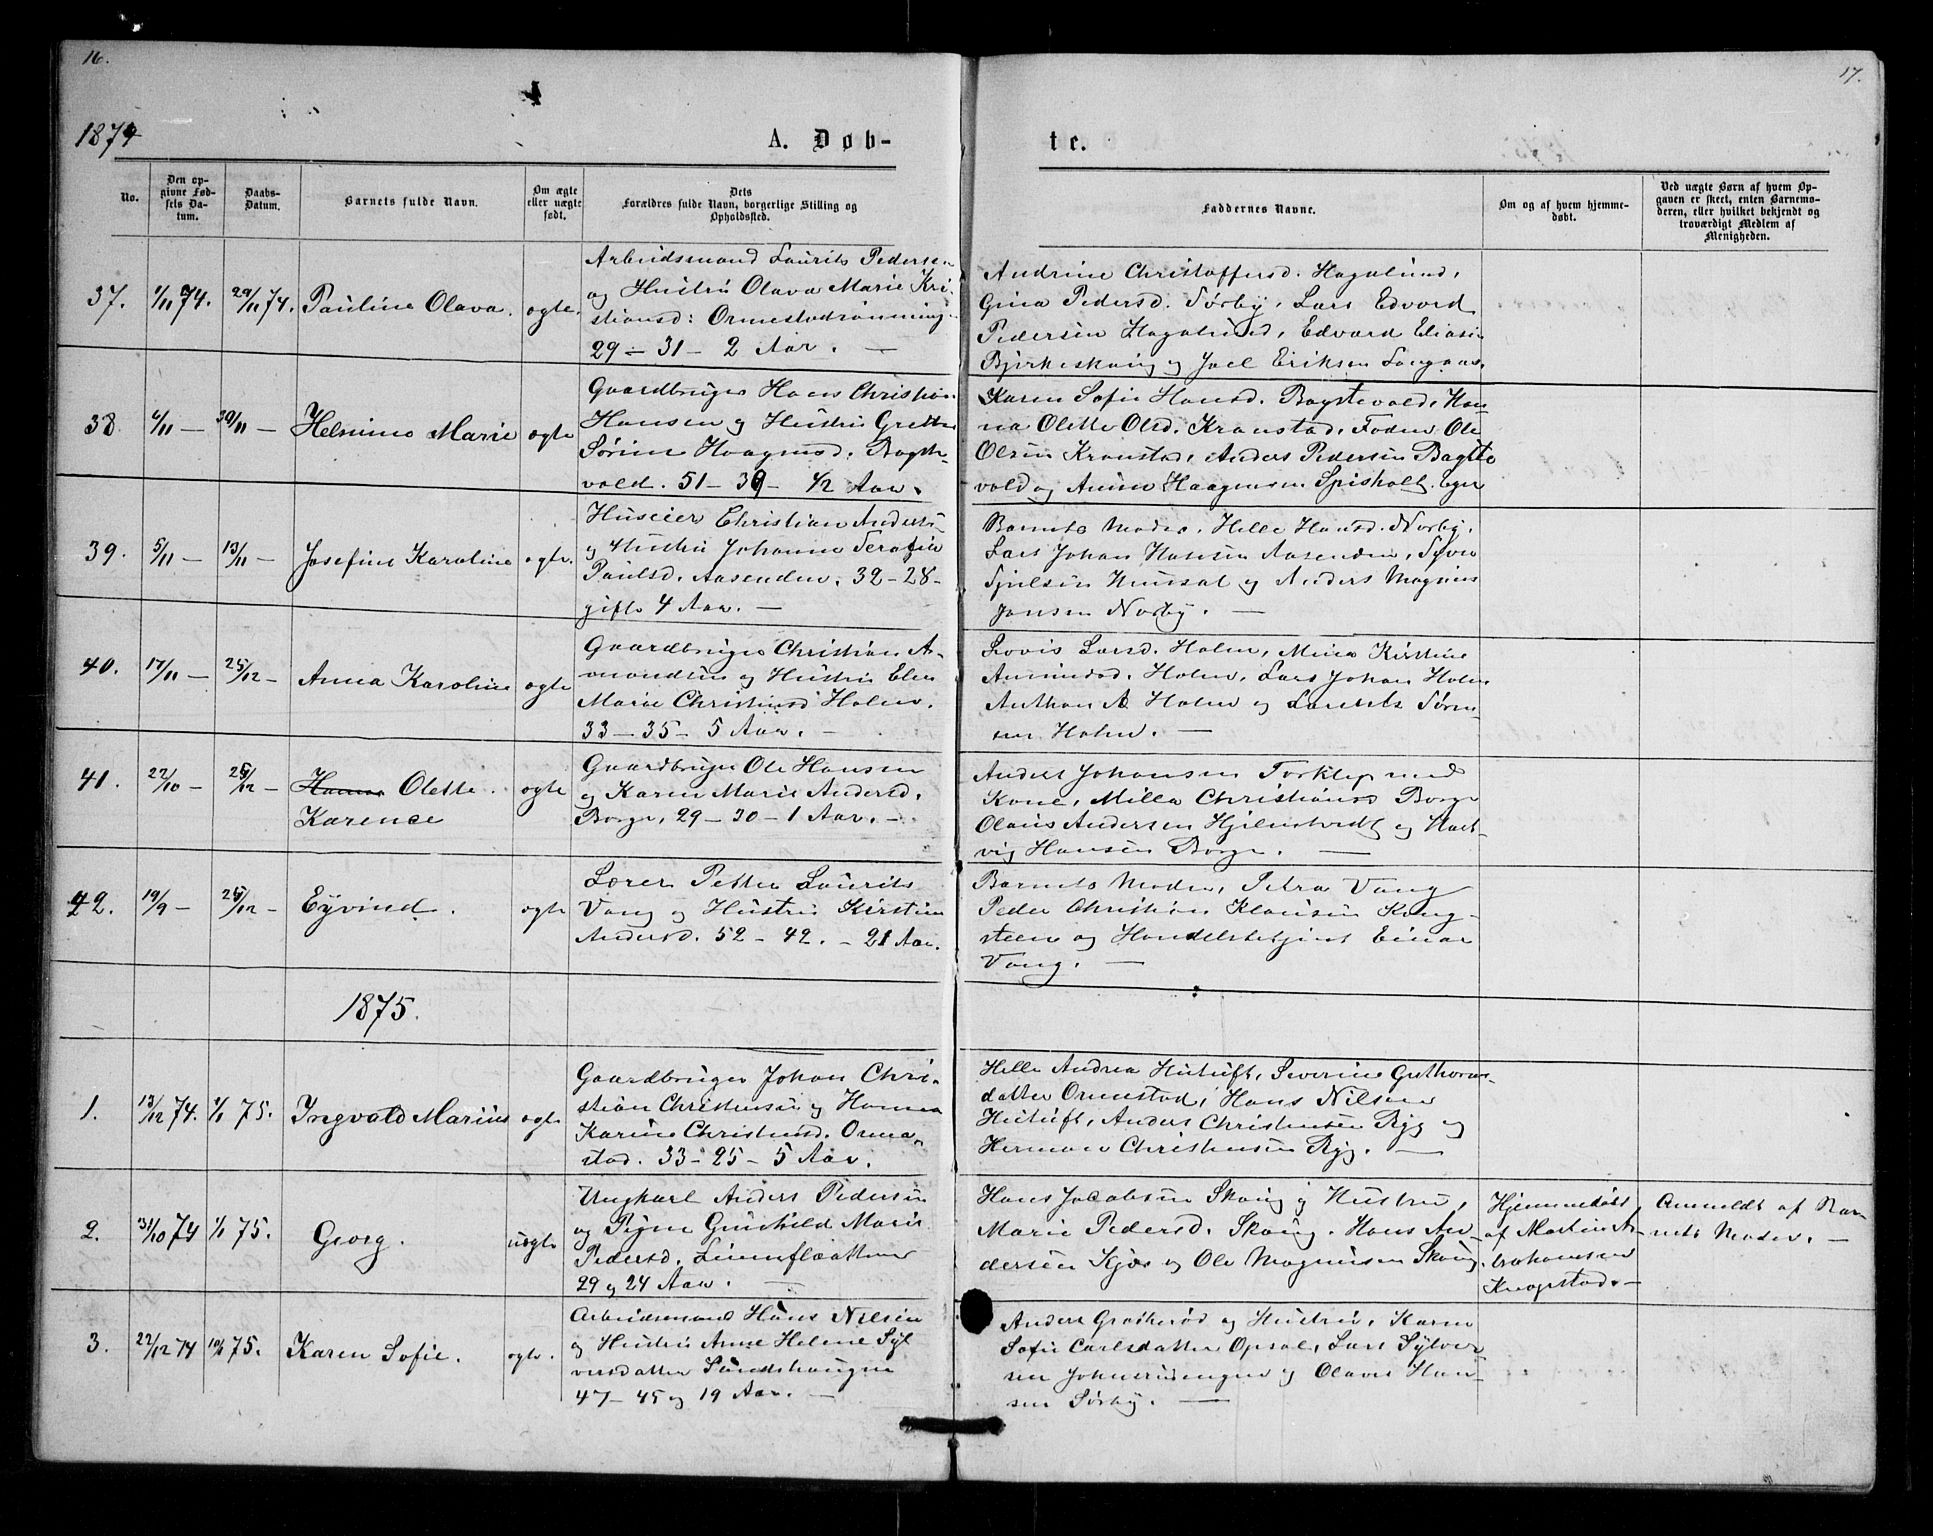 16.
17.
1874
A. Døb-
te.
No.
Den op-
givne Fød-
sels Da-
tum.
Daabs-
Datum.
Barnets fulde Navn.
Om ægte
eller uægte
født.
Dets
Forældres fulde Navn, borgerlige Stilling og
Opholdssted.
Faddernes Navne.
Om og af hvem hjemme-
døbt.
Ved uægte Børn af hvem Op-
gaven er skeet, enten Barnemo-
deren, eller hvilket bekjendt og
troværdigt Medlem af
Menigheden.
37. 1/11 74. 29/11 74. Pauline Olava. ægte.
Arbeidsmand Laurits Pedersen
og Hustru Olava Marie Kri-
stiansd: Ormestadrønning.
29 - 31 - 2 Aar. -
Andrine Christoffersd. Hagalund,
Gina Pedersd. Sørby, Lars Edvard
Pedersen Hagalund, Edvard Eliasen
Bjirkeskoug og Joel Eriksen
38. 6/11 - 30/11 - Marie ægte
Gaardbruger Hans Christian
Hansen og Hustru Grethe
Sørine Haagensd. Bagste-
vold. 51 - 39 - 1/2 Aar.
Karen Sofie Hansd. Bagstevold, Han-
na Olette Olsd. Kranstad, Faderen Ole
Olsen Kranstad, Anders Pedersen Bagste
vold og Haagensen Spisholt. Eger
39. 5/11 - 13/11 - Josefine Karoline ægte.
Huseier Christian Anders.
og Hustru Johanne Serafie
Paulsd. Aasenden. 32 - 28 -
gifte 4 Aar. -
Barnets Moder, Helle Hansd. Norby,
Lars Johan Hansen Aasenden,
og Anders Magnus
Jansen Norby. -
40. 17/11 - 25/12 - Anna Karoline ægte
Gaardbruger Christian A-
mondsen og Hustru Elen
Marie Christiansd Holm.
33 - 35 - 5 Aar. -
Lovis Larsd. Holm, Mina Kirstine
Holm, Lars Johan Holm
Anthon A Holm og Laurits Søren-
sen Holm. -
41. 22/10 - 25/12 - Hanna Olette.
Karence
ægte
Gaardbruger Ole Hansen
og Karen Marie Andersd.
Borge, 29 - 30 - 1 Aar. -
Anders Johansen Torklep med
Kone, Milla Christiansd Borge
Olaus Andersen Hjelmtvedt og Hart-
vig Hansen Borge. -
42. 19/9 - 25/12 - Eyvind. ægte
Lærer Petter Laurits
Vang og Hustru Kirstine
Andersd. 52 - 42. - 21 Aar.
Barnets Moder, Petra Vang
Peder Christian Klausen Kong-
steen og Handelsbetjent Einar
Vang. -
1875.
1. 13/12 74. 1/1 75. Ingvald Marius ægte
Gaardbruger Johan Chri-
stian Christensen og Hanna
Karine Christensd. Orme-
stad. 33 - 25 - 5 Aar.
Helle Andrea Hutuft, Severine Guthorms-
datter Ormestad, Hans Nilsen
Hutuft, Anders Christensen Ryg og
Herman Christensen Ryg. -
2. 31/10 74 1/1 75. Georg. uægte
Ungkarl Anders Pedersen
og Pigen Gunhild Marie
Pedersd.
29 og 24 Aar. -
Hans Jacobsen Skoug og Hustru,
Marie Pedersd. Skoug. Hans An-
dersen Kjær og Ole Magnusen Skoug.
Hjemmedøbt
af Martin A-
brahamsen
Knapstad. -
Anmeldt af Bar-
nets Moder. -
3. 22/12 74 10/1 75. Karen Sofie. ægte.
Arbeidsmand Hans Nilsen
og Hustru Anne Helene Syl
versdatter Sundshaugen
47 - 45 og 19 Aar. -
Anders Graakerød og Hustru, Karen
Sofie Carlsdatter Opsal, Lars Sylver
sen og Olaves Han-
sen Sørby. -